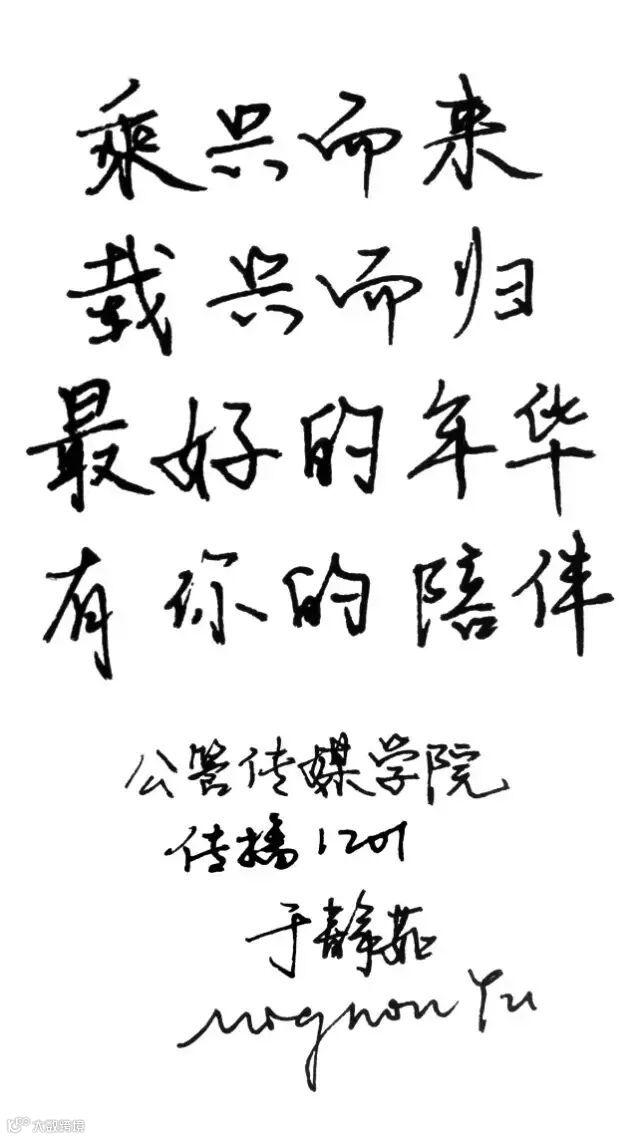 乘兴而来
载兴而归
最好的年华
有你的陪伴
公管传媒学院
传播1201
于静茹
Mignon Yu
大数跨境